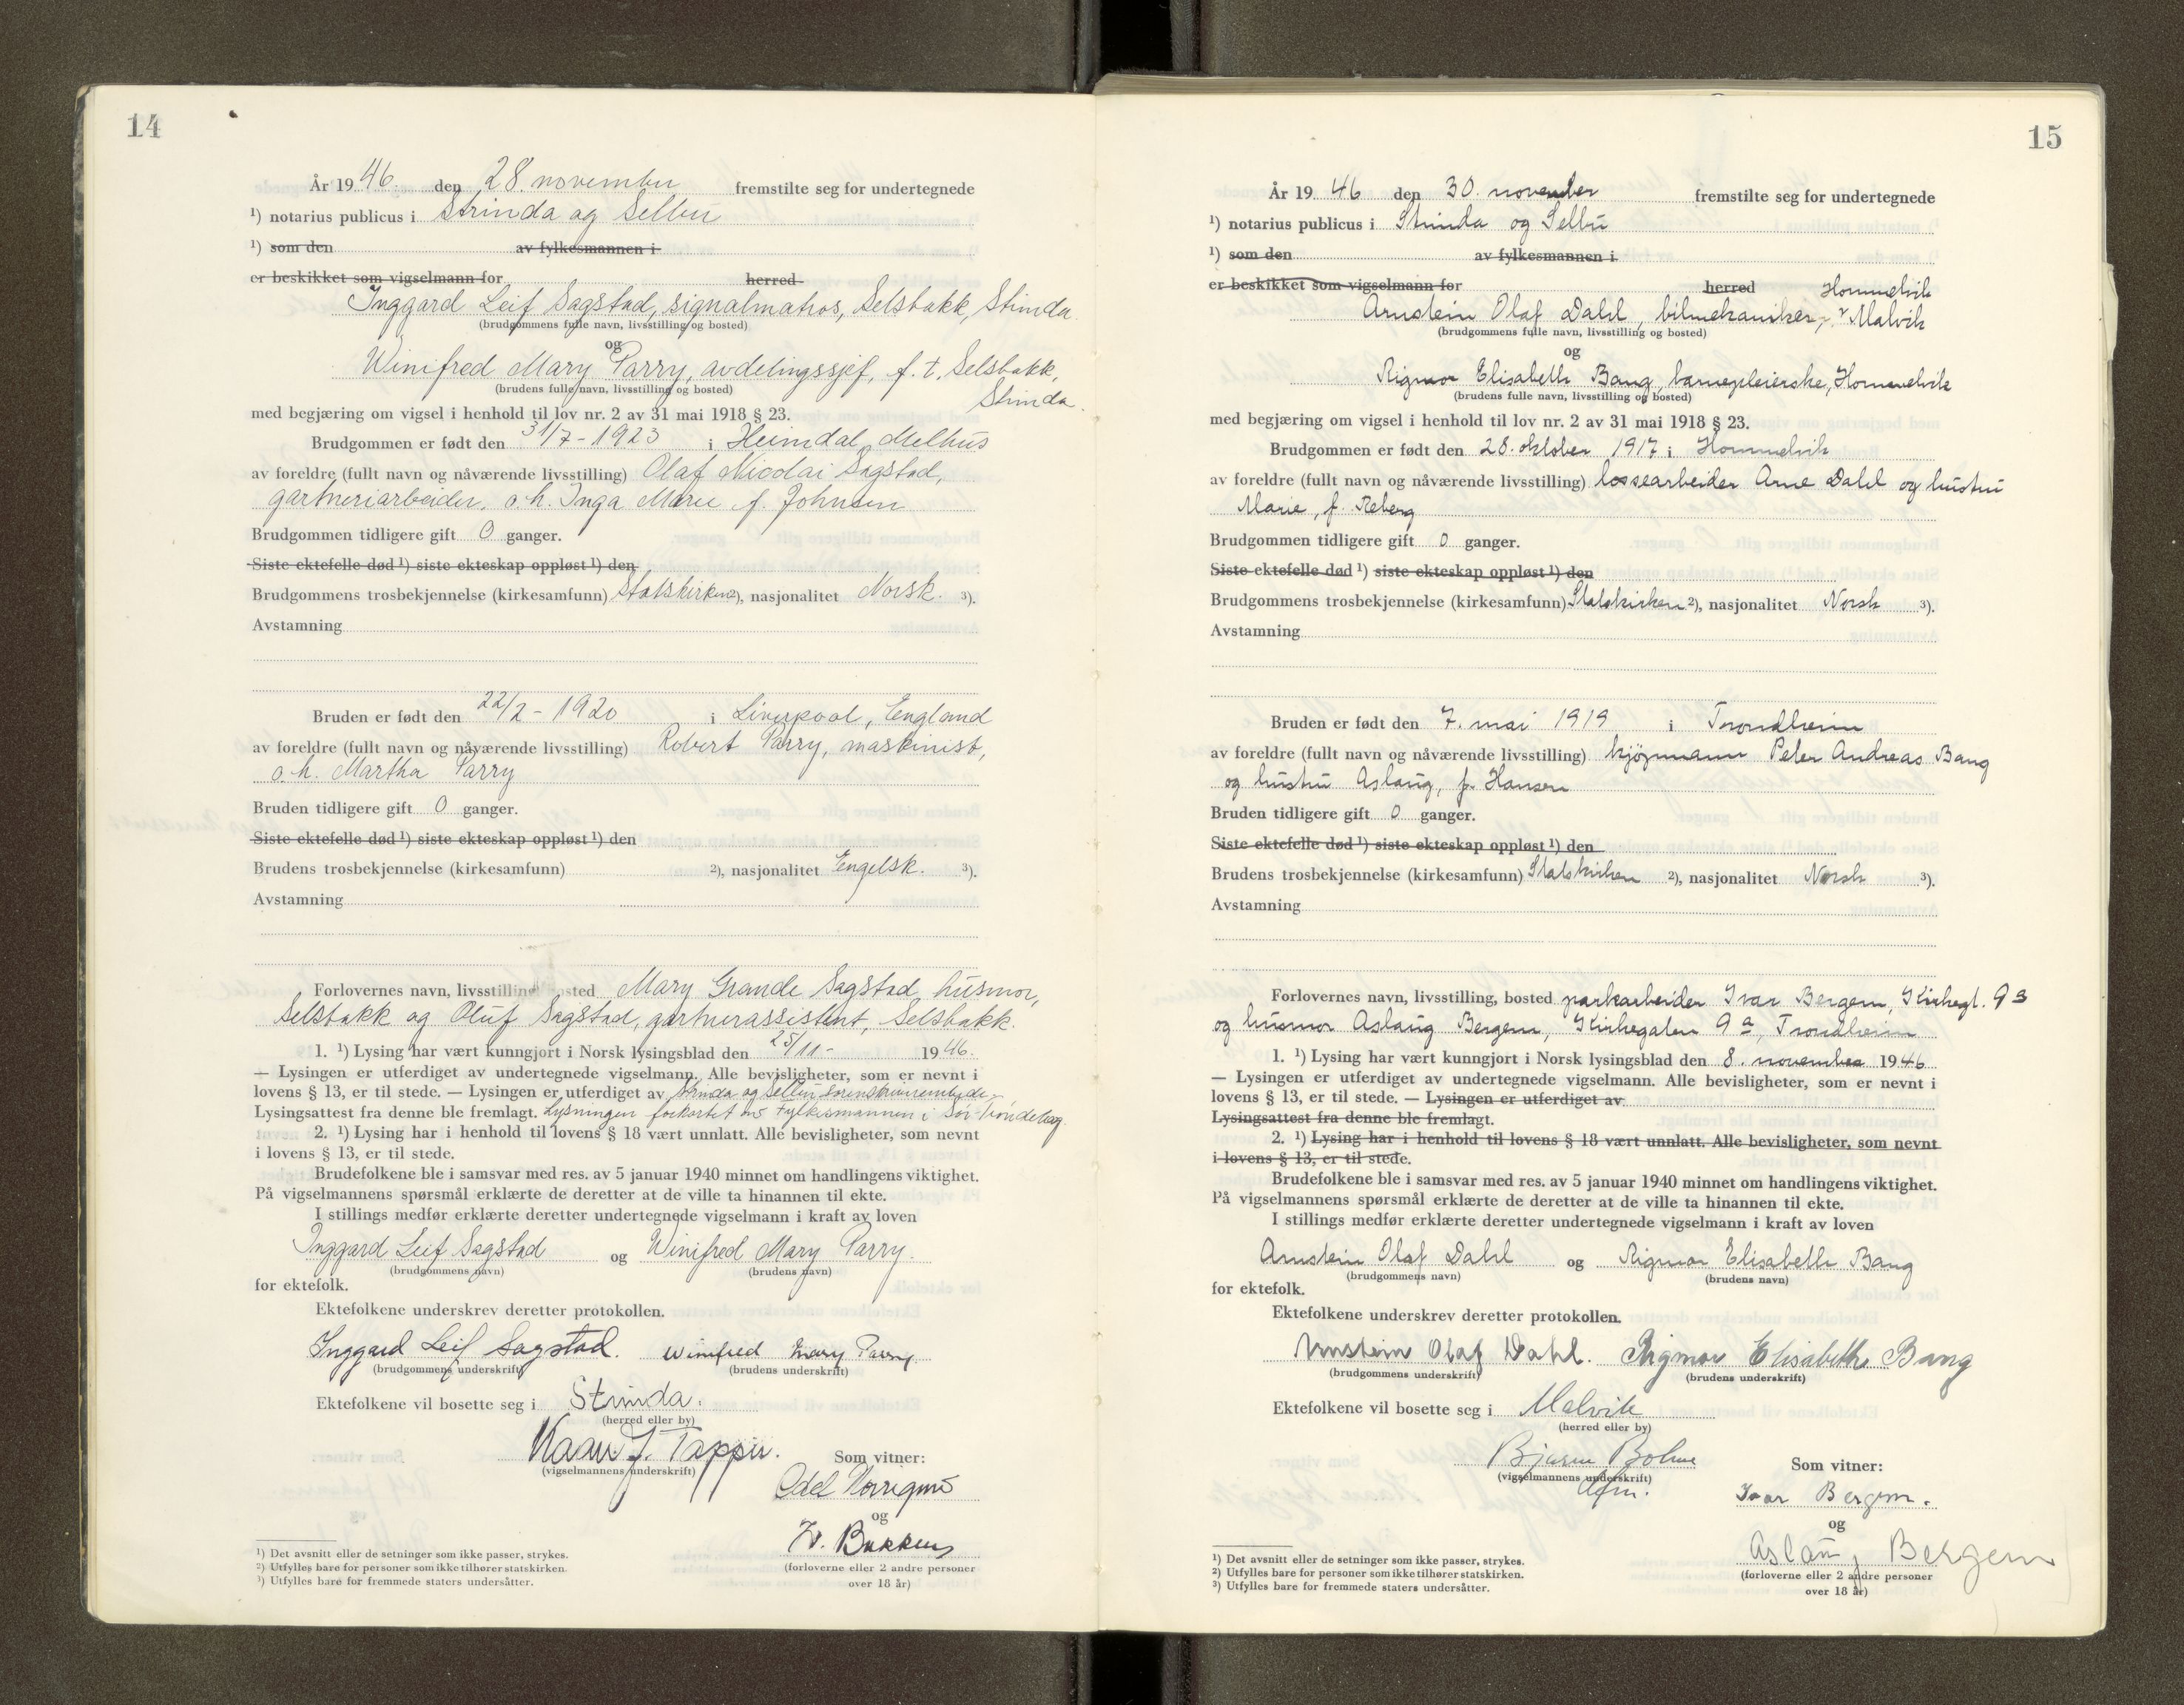 14
År 1946. den 28. november fremstilte seg for undertegnede
¹) notarius publicus i Strinda og Selbu
¹) som den av fylkesmannen i
er beskikket som vigselmann for herred
Inggard Leif Sagstad, signalmatros, Selsbakk, Strinda
(brudgommens fulle navn, livsstilling og bosted)
og
Winifred Mary Parry, avdelingssjef, f. t. Selsbakk,
(brudens fulle navn, livsstilling og bosted)
Strinda.
med begjæring om vigsel i henhold til lov nr. 2 av 31 mai 1918 § 23.
Brudgommen er født den 31/7 - 1923 i Heimdal, Melhus
av foreldre (fullt navn og nåværende livsstilling) Olaf Nicolai Sagstad,
gartneriarbeider, o. h. Inga Marie f. Johnsen
Brudgommen tidligere gift 0 ganger.
Siste ektefelle død ¹) siste ekteskap oppløst ¹) den
Brudgommens trosbekjennelse (kirkesamfunn) Statskirken ²), nasjonalitet Norsk. ³).
Avstamning
Bruden er født den 22/2 - 1920 i Liverpool, England
av foreldre (fullt navn og nåværende livsstilling) Robert Parry, maskinist,
o. h. Martha Parry
Bruden tidligere gift 0 ganger.
Siste ektefelle død ¹) siste ekteskap oppløst ¹) den
Brudens trosbekjennelse (kirkesamfunn) ²), nasjonalitet Engelsk. ³).
Avstamning
Forlovernes navn, livsstilling, bosted Mary Grande Sagstad, husmor,
Selsbakk og Oluf Sagstad, gartnerassistent, Selsbakk.
1. ¹) Lysing har vært kunngjort i Norsk lysingsblad den 25/11 - 1946.
— Lysingen er utferdiget av undertegnede vigselmann. Alle bevisligheter, som er nevnt i
lovens § 13, er til stede. — Lysingen er utferdiget av Strinda og Selbu sorenskriverembede.
Lysingsattest fra denne ble fremlagt. Lysningen forkortet av fylkesmannen i Sør-Trøndelag.
2. ¹) Lysing har i henhold til lovens § 18 vært unnlatt. Alle bevisligheter, som nevnt
i lovens § 13, er til stede.
Brudefolkene ble i samsvar med res. av 5 januar 1940 minnet om handlingens viktighet.
På vigselmannens spørsmål erklærte de deretter at de ville ta hinannen til ekte.
I stillings medfør erklærte deretter undertegnede vigselmann i kraft av loven
Inggard Leif Sagstad og Winifred Mary Parry.
(brudgommens navn) (brudens navn)
for ektefolk.
Ektefolkene underskrev deretter protokollen.
Inggard Leif Sagstad. Winifred Mary Parry.
(brudgommens underskrift) (brudens underskrift)
Ektefolkene vil bosette seg i Strinda.
(herred eller by)
J. Tapper.
(vigselmannens underskrift) Som vitner:
Odel
og
(forloverne eller 2 andre personer
over 18 år)
¹) Det avsnitt eller de setninger som ikke passer, strykes.
²) Utfylles bare for personer som ikke tilhører statskirken.
³) Utfylles bare for fremmede staters undersåtter.
15
År 1946 den 30. november fremstilte seg for undertegnede
¹) notarius publicus i Strinda og Selbu
¹) som den av fylkesmannen i
er beskikket som vigselmann for herred Hommelvik
Arnstein Olaf Dahl, bilmekaniker, Malvik
(brudgommens fulle navn, livsstilling og bosted)
og
Rigmor Elisabeth Bang, barnepleierske, Hommelvik
(brudens fulle navn, livsstilling og bosted)
med begjæring om vigsel i henhold til lov nr. 2 av 31 mai 1918 § 23.
Brudgommen er født den 28. oktober 1917 i Hommelvik
av foreldre (fullt navn og nåværende livsstilling) lossearbeider Arne Dahl og hustru
Marie, f. Reberg
Brudgommen tidligere gift 0 ganger.
Siste ektefelle død ¹) siste ekteskap oppløst ¹) den
Brudgommens trosbekjennelse (kirkesamfunn) Statskirken ²), nasjonalitet Norsk ³).
Avstamning
Bruden er født den 7. mai 1919 i Trondheim
av foreldre (fullt navn og nåværende livsstilling) kjøpmann Peter Andreas Bang
og hustru Aslaug, f. Hansen
Bruden tidligere gift 0 ganger.
Siste ektefelle død ¹) siste ekteskap oppløst ¹) den
Brudens trosbekjennelse (kirkesamfunn) Statskirken ²), nasjonalitet Norsk ³).
Avstamning
Forlovernes navn, livsstilling, bosted parkarbeider Ivar Bergem, Kirkegt. 9a
og husmor Aslaug Bergem, Kirkegaten 9a, Trondheim
1. ¹) Lysing har vært kunngjort i Norsk lysingsblad den 8. november 1946
— Lysingen er utferdiget av undertegnede vigselmann. Alle bevisligheter, som er nevnt i
lovens § 13, er til stede. — Lysingen er utferdiget av
Lysingsattest fra denne ble fremlagt.
2. ¹) Lysing har i henhold til lovens § 18 vært unnlatt. Alle bevisligheter, som nevnt
i lovens § 13, er til stede.
Brudefolkene ble i samsvar med res. av 5 januar 1940 minnet om handlingens viktighet.
På vigselmannens spørsmål erklærte de deretter at de ville ta hinannen til ekte.
I stillings medfør erklærte deretter undertegnede vigselmann i kraft av loven
Arnstein Olaf Dahl og Rigmor Elisabeth Bang
(brudgommens navn) (brudens navn)
for ektefolk.
Ektefolkene underskrev deretter protokollen.
Arnstein Olaf Dahl. Rigmor Elisabeth Bang
(brudgommens underskrift) (brudens underskrift)
Ektefolkene vil bosette seg i Malvik
(herred eller by)
Bjarne Bohne
(vigselmannens underskrift) Som vitner:
Ivar Bergem.
og
Aslaug Bergem
(forloverne eller 2 andre personer
over 18 år)
¹) Det avsnitt eller de setninger som ikke passer, strykes.
²) Utfylles bare for personer som ikke tilhører statskirken.
³) Utfylles bare for fremmede staters undersåtter.